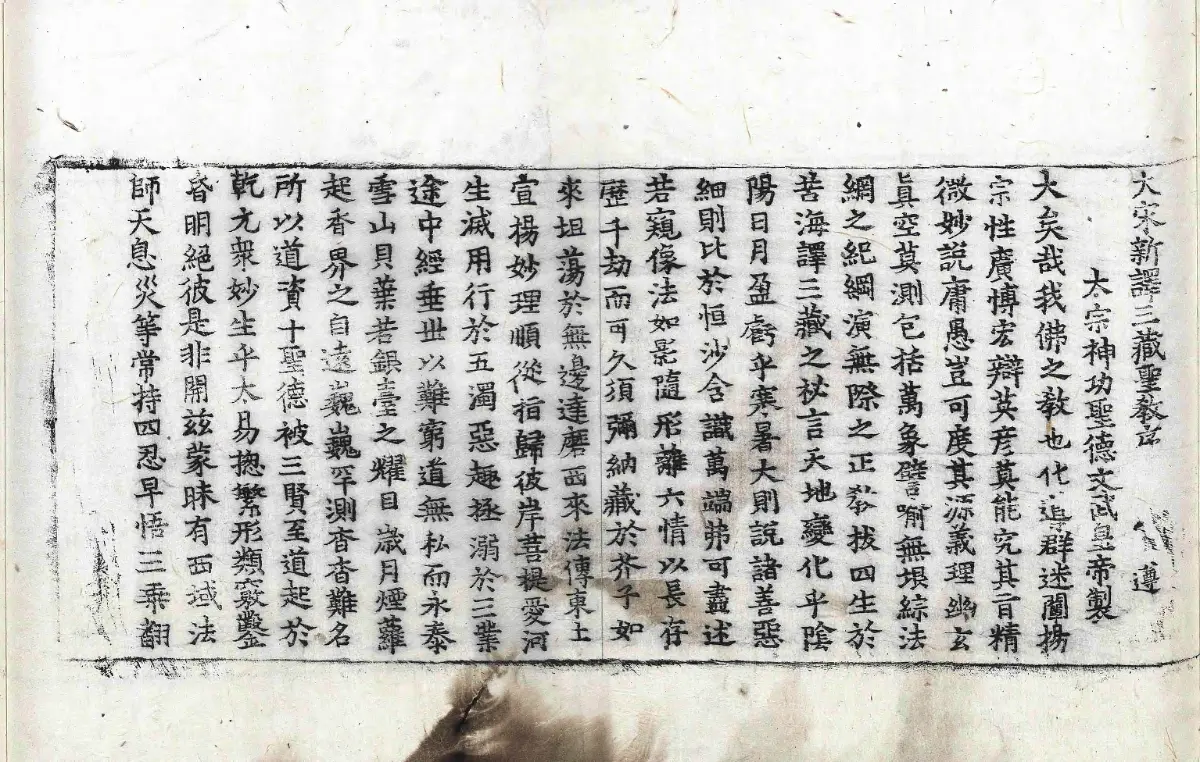 大宋新譯三藏聖教序 遵
太宗神功聖德文武皇帝製
大矣哉我佛之教也化導群迷闡揚
宗性廣博宏辯英彦莫能究其旨精
微妙說庸愚豈可度其源義理幽玄
真空莫測包括萬象譬喻無垠綜法
網之紀綱演無際之正教拔四生於
苦海譯三藏之祕言天地變化乎陰
陽日月盈虧乎寒暑大則說諸善惡
細則比於恒沙含識萬端弗可盡述
若窺像法如影隨形離六情以長存
歷千劫而可久須彌納藏於芥子如
來坦蕩於無邊達磨西來法傳東土
宣揚妙理順從指歸彼岸菩提愛河
生滅用行於五濁惡趣拯溺於三業
途中經垂世以難窮道無私而永泰
雪山貝葉若銀臺之耀目歲月煙蘿
起香界之自遠巍巍罕測杳杳難名
所以道資十聖德被三賢至道起於
乾元衆妙生乎太易揔繁形類竅鑿
昏明絕彼是非開玆蒙昧有西域法
師天息災等常持四忍早悟三乘翻